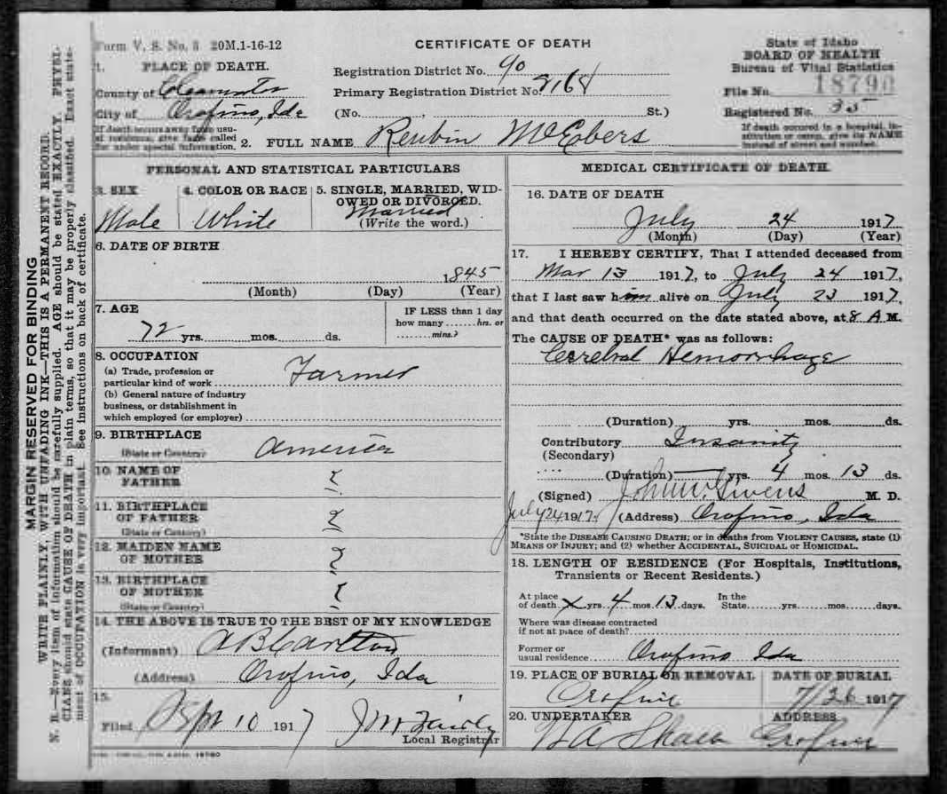 Form V. S. No. 5 20M.1-16-12
CERTIFICATE OF DEATH
State of Idaho
BOARD OF HEALTH
Bureau of Vital Statistics
File No. 18790
Registered No. 35
If death occurred in a hospital, institution or camp, give the NAME instead of street and number.
1. PLACE OF DEATH.
County of Clearwater
City of Orofino, Ida
If death occurs away from usual residence, give facts called for under special information.
Registration District No. 90
Primary Registration District No. 2168
(No. St.)
2. FULL NAME Reubin McEbers
PERSONAL AND STATISTICAL PARTICULARS
3. SEX
Male
4. COLOR OR RACE
White
5. SINGLE, MARRIED, WIDOWED OR DIVORCED.
Married
(Write the word.)
6. DATE OF BIRTH
1845
(Month) (Day) (Year)
7. AGE
72 yrs. mos. ds.
IF LESS than 1 day
how many hrs. or
mins.?
8. OCCUPATION
(a) Trade, profession or
particular kind of work Farmer
(b) General nature of industry
business, or dstablishment in
which employed (or employer)
9. BIRTHPLACE
(State or Country) America
10. NAME OF
FATHER ?
11. BIRTHPLACE
OF FATHER ?
(State or Country)
12. MAIDEN NAME
OF MOTHER ?
13. BIRTHPLACE
OF MOTHER ?
(State or Country)
14. THE ABOVE IS TRUE TO THE BEST OF MY KNOWLEDGE
(Informant) A B Carlton
(Address) Orofino, Ida
15.
Filed 10 1917
Local Registrar
MEDICAL CERTIFICATE OF DEATH.
16. DATE OF DEATH
July 24 1917
(Month) (Day) (Year)
17. I HEREBY CERTIFY, That I attended deceased from
Mar 13 1917, to July 24 1917,
that I last saw him alive on July 23 1917,
and that death occurred on the date stated above, at 8 A M.
The CAUSE OF DEATH* was as follows:
Cerebral Hemorrhage
(Duration) yrs. mos. ds.
Contributory Insanity
(Secondary)
(Duration) yrs. 4 mos. 13 ds.
(Signed) John W. Givens M. D.
July 24 1917. (Address) Orofino, Ida
*State the DISEASE CAUSING DEATH; or in deaths from VIOLENT CAUSES, state (1)
MEANS OF INJURY; and (2) whether ACCIDENTAL, SUICIDAL or HOMICIDAL.
18. LENGTH OF RESIDENCE (For Hospitals, Institutions,
Transients or Recent Residents.)
At place
of death x yrs. 4 mos. 13 days.
In the
State yrs. mos. days.
Where was disease contracted
if not at place of death?
Former or
usual residence Orofino Ida
19. PLACE OF BURIAL OR REMOVAL
Orofino
DATE OF BURIAL
7/26 1917
20. UNDERTAKER
ADDRESS
Orofino
MARGIN RESERVED FOR BINDING
WRITE PLAINLY, WITH UNFADING INK—THIS IS A PERMANENT RECORD.
N. B.—Every item of information should be carefully supplied. AGE should be stated EXACTLY. PHYSICIANS should state CAUSE OF DEATH in plain terms, so that it may be properly classified. Exact statement of OCCUPATION is very important. See instructions on back of certificate.